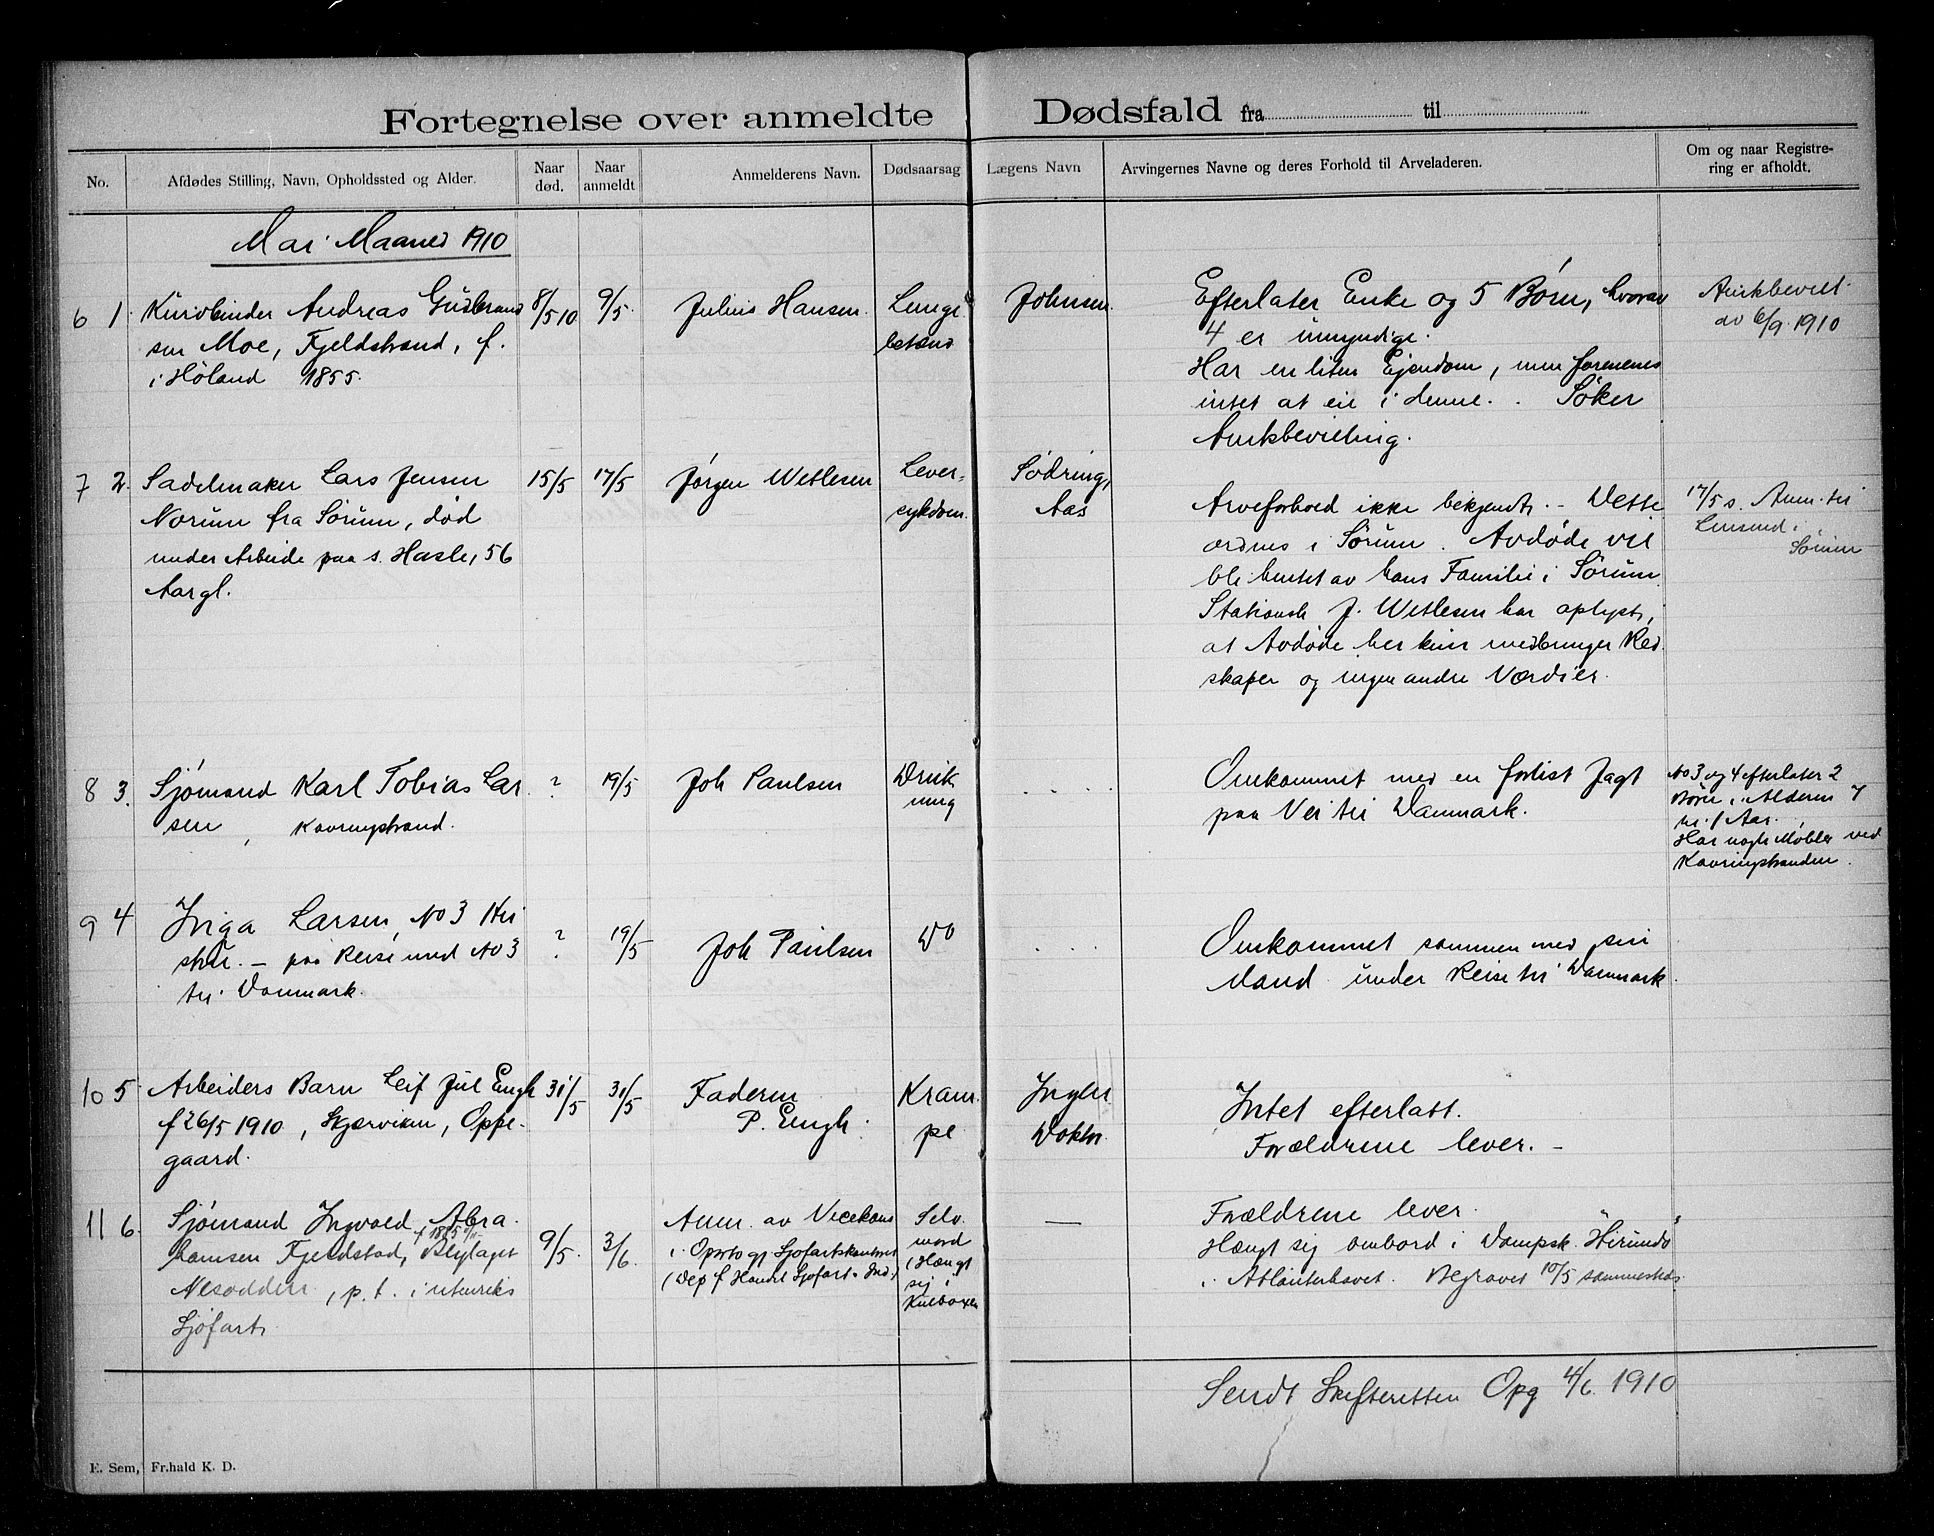 Fortegnelse over anmeldte Dødsfald fra til
No.
Afdødes Stilling, Navn, Opholdssted og Alder.
Naar død.
Naar anmeldt
Anmelderens Navn.
Dødsaarsag
Lægens Navn
Arvingernes Navne og deres Forhold til Arveladeren.
Om og naar Registre-
ring er afholdt.
Mai Maaned 1910
6 1. Kurvbinder Andreas Gudbrand
sen Moe, Fjeldstrand, f.
i Høland 1855.
8/5 10
9/5.
Julius Hansen.
Lunge
betænd
Johnsen
Efterlater Enke og 5 Børn, hvorav
4 er umyndige.
Har en liten Ejendom, men formenes
intet at eie i denne. Søker
Amtsbevilling.
Amtsbevill.
av 6/9. 1910
7 2. Sadelmaker Lars Jensen
Norum fra Sørum, død
under Arbeide paa s. Hasle, 56
Aar gl.
15/5
17/5
Jørgen Wetlesen
Lever-
sykdom.
Sødring,
Aas
Arveforhold ikke bekjendt. - Dette
ordnes i Sørum. Avdøde vil
bli hentet av hans Familie i Sørum.
Stationsb J. Wetlesen har oplyst,
at Avdøde her kun medbringer Red
skaper og ingen andre Værdier.
17/5 s. Anm. til
Lensmd.
Sørum
8 3. Sjømand Karl Tobias Lar
sen, Kavringstrand.
?
19/5
Joh Paulsen
Druk
ning
. . . .
Omkommet med en forlist Jagt
paa Vei til Danmark.
No 3 og 4 efterlater 2
Børn i Alderen 7
til 1 Aar.
Har nogle Møbler ved
Kavringstranden.
9 4 Inga Larsen, No 3 Hu
stru. - paa Reise med No 3
til Danmark.
?
19/5
Joh Paulsen
Do
. . . .
Omkommet sammen med sin
Mand under Reise til Danmark.
10 5 Arbeiders Barn Leif Jul Engh
f 26/5 1910, Skjærviken, Oppe-
gaard.
31/5
31/5
Faderen
P. Engh.
Kram
pe
Ingen
Doktor.
Intet efterlatt.
Forældrene lever. -
11 6. Sjømand Ingvald Abra
hamsen Fjeldstad, Blylaget
Nesodden, p.t. i utenriks
Sjøfart.
9/5.
3/6.
Anm. av Vicekons
i Oporto gj Sjøfartskontoret
(Dep f Handel Sjøfart & Ind.)
Selv
mord
(Hængt
sig i
Kulboxen
—
Forældrene lever.
Hængt sig ombord i Dampsk. "Hirundo"
i Atlanterhavet. Begravet 10/5 sammesteds
Sendt Skifteretten Opg 4/6. 1910
E. Sem, Fr.hald K. D.